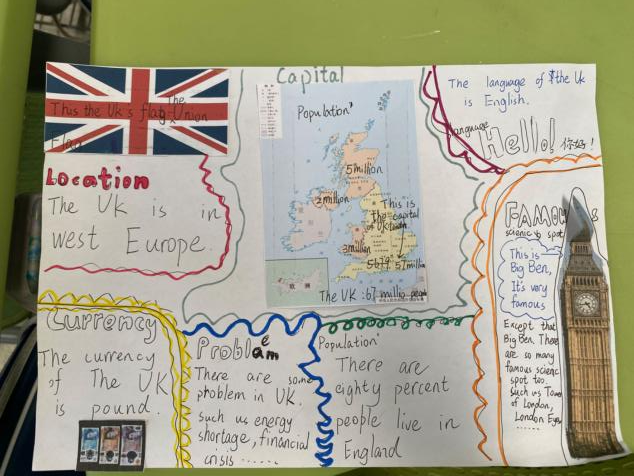 This the Uk's flag The Union
Flag
Location
The UK is in
west Europe.
Capital
Population
5million
2million
This is
the capital
of UK
3million
57million
The UK: 67 million people
The language of the Uk
is English.
language
Hello! 你好!
FAMOUS
scienic spot
This is
Big Ben,
It's very
famous
Except that
Big Ben, There
are so many
famous scienic
spot too,
such as Tower
of London,
London Eye
Currency
The currency
of The UK
is pound.
Problem
There are some
problem in UK.
such us energy
shortage, financial
crisis ......
Population
There are
eighty percent
people live in
England